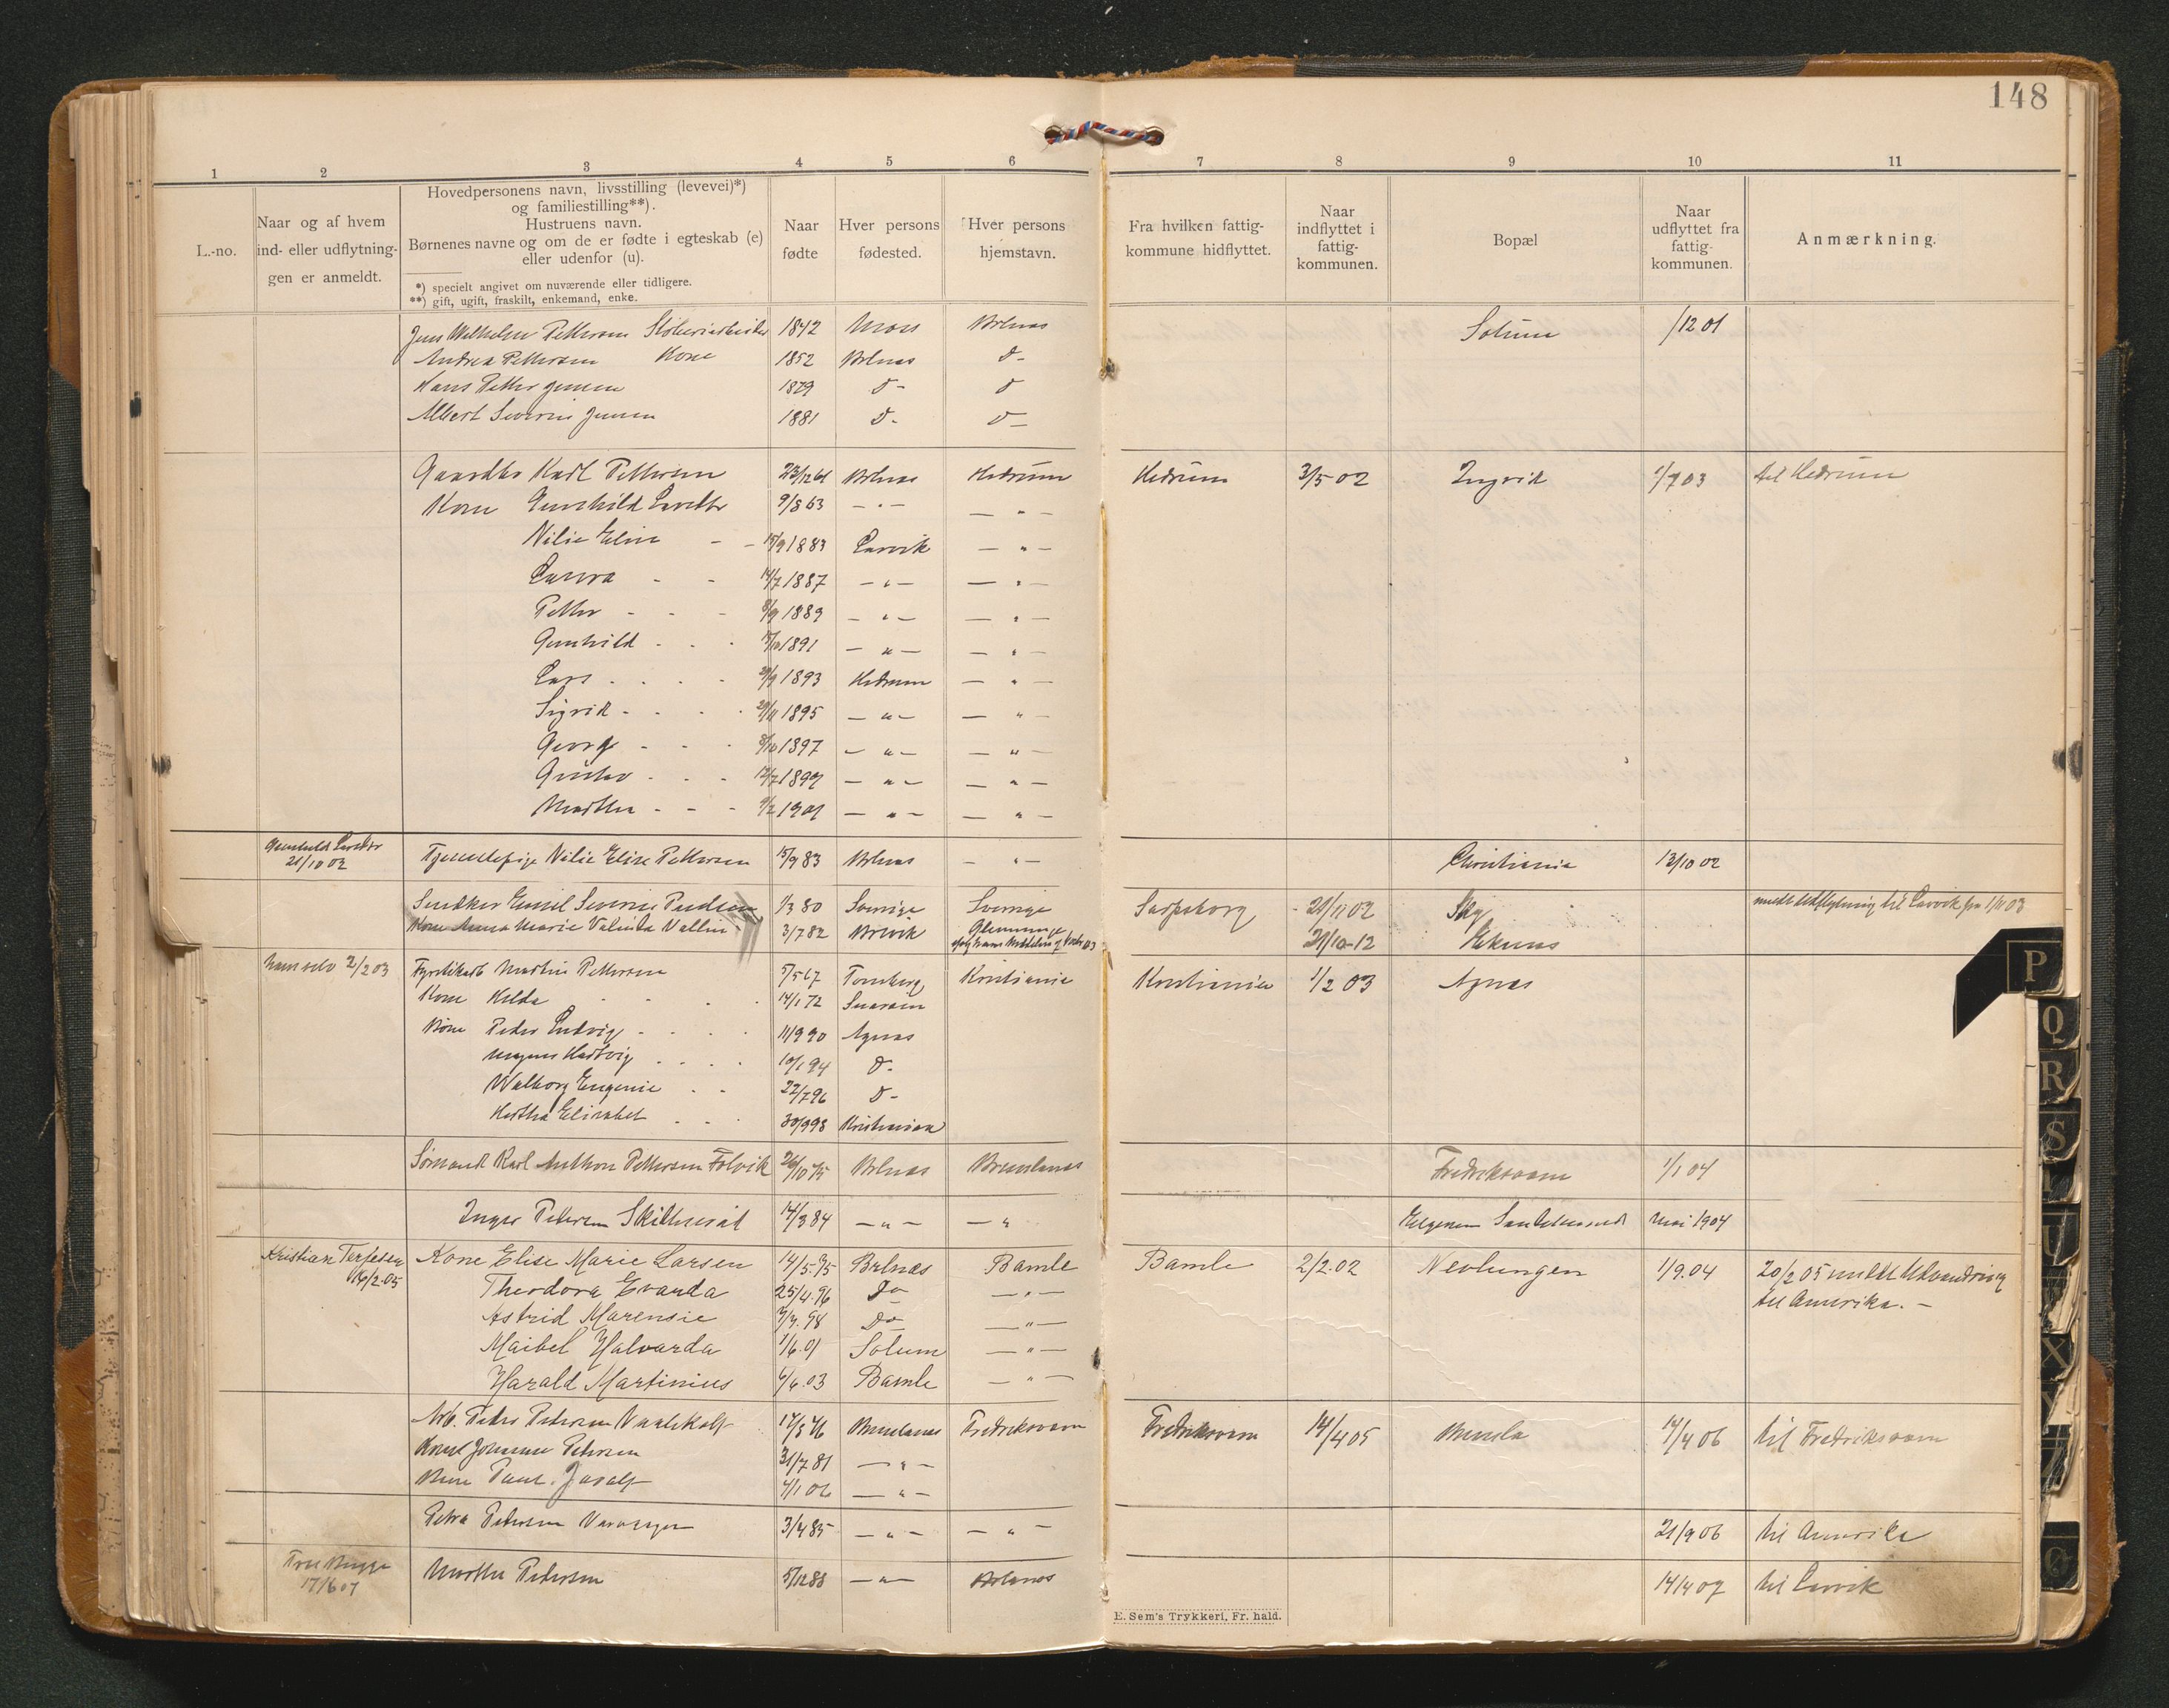 148
1 2 3 4 5 6 7 8 9 10 11
L.-no.
Naar og af hvem
ind- eller udflytnin-
gen er anmeldt.
Hovedpersonens navn, livsstilling (levevei)*)
og familiestilling**).
Hustruens navn.
Børnenes navne og om de er fødte i egteskab (e)
eller udenfor (u).
*) specielt angivet om nuværende eller tidligere.
**) gift, ugift, fraskilt, enkemand, enke.
Naar
fødte
Hver persons
fødested.
Hver persons
hjemstavn.
Fra hvilken fattig-
kommune hidflyttet.
Naar
indflyttet i
fattig-
kommunen.
Bopæl
Naar
udflyttet fra
fattig-
kommunen.
Anmærkning.
Jens Wilhelm Pettersen 1842 Moss Brlnæs Solum /12 01
Andrea Pettersen Kone 1852 Brlnæs D-
Hans Petter Jensen 1879 D- D
Albert Severin Jensen 1881 D- D-
Gaardbr Karl Pettersen 23/12 61 Brlnæs Hedrum Hedrum 3/5 02 Ingrid 1/7 03 til Hedrum
Kone Gunhild 9/8 63 - " - - " -
Nilie Elise - - 15/9 1883 Larvik - " -
Laura - - 14/7 1887 - " - - " -
Petter - - - 8/9 1889 - " - - " -
Gunhild - - - 15/10 1891 - " - - " -
Lars - - - - 29/9 1893 Hedrum - " -
Sigrid - - - - 29/11 1895 - " - - " -
Georg - - - 8/10 1897 - " - - " -
Gustav - - - 12/7 1899 - " - - " -
Marthe - - - 9/2 1901 - " - - " -
Gunhild
21/10 02 Tjenestepige Nilie Elise Pettersen 15/9 83 Brlnæs - " - Christiania 13/10 02
Snedker Emil Severin 1/3 80 Sverige Sverige Sarpsborg - 21/11 02 Sky meldt Udflytning til Larvik fra 1/11 03
Kone Anna Marie Valinda Vallin 3/7 82 Brevik Glemminge 21/10-12
ham selv 2/2 03 Martin Pettersen 5/5 67 Tønsberg Kristiania Kristiania 1/2 03 Agnæs
Kone Hilda - - - 14/1 72
Børn Peder Ludvig - - - 11/9 90 Agnæs
Magnus Hartvig - - - 10/1 94 D-
Walborg Eugenie - - 22/7 96 D-
Hertha Elisabet - - - 30/9 98 Kristiania
Sømand Karl Anthon Pettersen Folvik 26/10 75 Brlnæs Brunlanes Fredriksværn 1/1 04
Inger Petersen 14/3 84 - " - - " Sandefjord Mai 1904
Kristian Terjesen
14/2.05
Kone Elise Marie Larsen 14/5.75 Brlnæs Bamle Bamle 2/2.02 Nevlungen 1/9.04 20/2 05 meldt Udvandring
til Amerika. -
Theodora Evarda 25/4.96 Do - " -
Astrid Marensie 7/7.98 Do - " -
Maibel Halvarda 1/6.01 Solum - " -
Harald Martinius 6/6.03 Bamle - " -
Arb. Peder Petersen 17/3 76 Brunlanes Fredriksværn Fredriksværn 14/4 05 14/4 06 til Fredriksværn
Kone Johanne Petersen 31/7 81 - " -
Barn Paul 4/1 06 - " -
Petra Petersen 3/4 85 - " - - " - 21/9 06 til Amerika
Fru Bugge
17/6 07
Marthe Petersen 5/12 88 - " - Brlanes 14/4 07 til Larvik
E. Sem's Trykkeri, Fr. hald.
P
Q
R
S
U
X
Y
Z
Ø